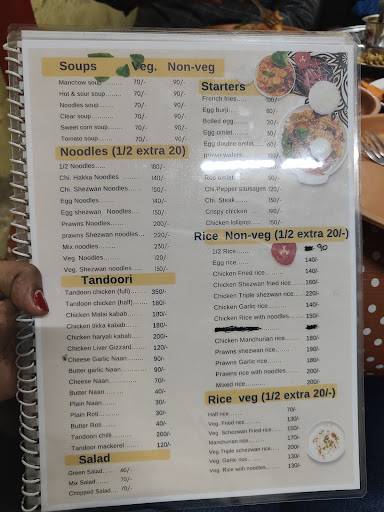 Soups Veg. Non-veg
Manchow soup........ 70/- 90/-
Hot & sour soup........ 70/- 90/-
Noodles soup........ 70/- 90/-
Clear soup........ 70/- 90/-
Sween corn soup........ 70/- 90/-
Tomato soup........ 70/- 90/-
Noodles (1/2 extra 20)
1/2 Noodles.....
Chi. Hakka Noodles...... 140/-
Chi. Shezwan Noodles..... 150/-
Egg Noodles........ 140/-
Egg shezwan Noodles..... 150/-
Prawns Noodles....... 200/-
prawns Shezwan noodles... 220/-
Mix noodles....... 230/-
Veg. Noodles....... 120/-
Veg. Shezwan noodles.... 150/-
Tandoori
Tandoori chicken (full)..... 350/-
Tandoori chicken (half)..... 180/-
Chicken Malai kabab...... 180/-
Chicken tikka kabab...... 180/-
Chicken haryali kabab...... 200/-
Chicken Liver Gizzard..... 120/-
Cheese Garlic Naan...... 90/-
Butter garlic Naan...... 90/-
Cheese Naan....... 70/-
Butter Naan....... 40/-
Plain Naan....... 30/-
Plain Roti....... 30/-
Butter Roti....... 40/-
Tandoori chilli....... 200/-
Tandoor mackerel...... 120/-
Salad
Green Salad..... 60/-
Mix Salad...... 70/-
Chopped Salad... 70/-
Starters
French fries.....
Egg burji......
Boiled egg.....
Egg omlet......
Egg double omlet.....
Chi.Pepper stausages 120/-
Chi. Steak...... 150/-
Crispy chicken...... 190/-
Chicken lollipop...... 150/-
Rice Non-veg (1/2 extra 20/-)
1/2 Rice...... 90
Egg rice....... 140/-
Chicken Fried rice..... 140/-
Chicken Shezwan fried rice 160/-
Chicken Triple shezwan rice 220/-
Chicken Garlic rice...... 140/-
Chicken Rice with noodles..... 150/-
Chicken Manchurian rice 180/-
Prawns shezwan rice...... 190/-
Prawns Garlic rice....... 180/-
Prawns rice with noodles 200/-
Mixed rice....... 200/-
Rice veg (1/2 extra 20/-)
Half rice....... 70/-
Veg. Fried rice....... 130/-
Veg. Schezwan Fried rice..... 150/-
Manchurian rice....... 170/-
Veg.Triple schezwan rice..... 200/-
Veg. Garlic rice...... 130/-
Veg. Rice with noodles..... 130/-